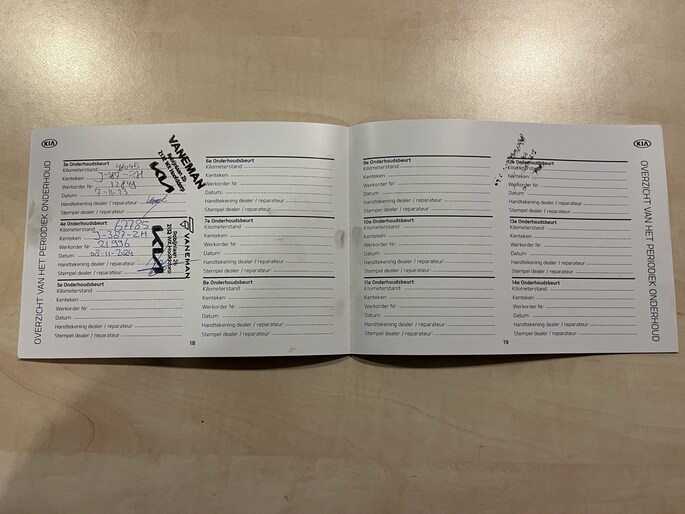 KIA
OVERZICHT VAN HET PERIODIEK ONDERHOUD
3e Onderhoudsbeurt
Kilometerstand
Kenteken
Werkorder Nr
Datum
Handtekening dealer / reparateur
Stempel dealer / reparateur
VANEMAN
KIA
4e Onderhoudsbeurt
Kilometerstand 67785
Kenteken J-387-ZH
Werkorder Nr 21996
Datum 08-11-2024
Handtekening dealer / reparateur
Stempel dealer / reparateur
VANEMAN
KIA
5e Onderhoudsbeurt
Kilometerstand
Kenteken
Werkorder Nr
Datum
Handtekening dealer / reparateur
Stempel dealer / reparateur
6e Onderhoudsbeurt
Kilometerstand
Kenteken
Werkorder Nr
Datum
Handtekening dealer / reparateur
Stempel dealer / reparateur
7e Onderhoudsbeurt
Kilometerstand
Kenteken
Werkorder Nr
Datum
Handtekening dealer / reparateur
Stempel dealer / reparateur
8e Onderhoudsbeurt
Kilometerstand
Kenteken
Werkorder Nr
Datum
Handtekening dealer / reparateur
Stempel dealer / reparateur
18
9e Onderhoudsbeurt
Kilometerstand
Kenteken
Werkorder Nr
Datum
Handtekening dealer / reparateur
Stempel dealer / reparateur
10e Onderhoudsbeurt
Kilometerstand
Kenteken
Werkorder Nr
Datum
Handtekening dealer / reparateur
Stempel dealer / reparateur
11e Onderhoudsbeurt
Kilometerstand
Kenteken
Werkorder Nr
Datum
Handtekening dealer / reparateur
Stempel dealer / reparateur
12e Onderhoudsbeurt
Kilometerstand
Kenteken
Werkorder Nr
Datum
Handtekening dealer / reparateur
Stempel dealer / reparateur
13e Onderhoudsbeurt
Kilometerstand
Kenteken
Werkorder Nr
Datum
Handtekening dealer / reparateur
Stempel dealer / reparateur
14e Onderhoudsbeurt
Kilometerstand
Kenteken
Werkorder Nr
Datum
Handtekening dealer / reparateur
Stempel dealer / reparateur
19
KIA
OVERZICHT VAN HET PERIODIEK ONDERHOUD